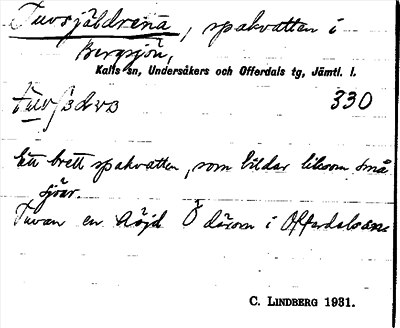 Tuvsjäldrena, spakvatten i
Bergsjön,
Kalls sn, Undersåkers och Offerdals tg, Jämtl. l.
330
Ett brett spakvatten, som bildar liksom små
sjöar.
Tuvan en höjd Ö därom i Offerdals sn
C. LINDBERG 1931.